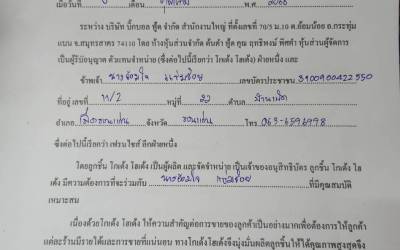 เมื่อวันที่ พ.ศ.
ระหว่าง บริษัท บิ๊กบอล ฟู้ด จำกัด สำนักงานใหญ่ ที่ตั้งเลขที่ 70/5 ม.10 ต.อ้อมน้อย อ.กระทุ่ม
แบน จ.สมุทรสาคร 74110 โดย ห้างหุ้นส่วนจำกัด ต้นคำ ฟู้ด คุณ หุ้นส่วนผู้จัดการ
เป็นผู้รับอนุญาต ตัวแทนจำหน่าย (ซึ่งต่อไปนี้เรียกว่า โกเด้ง โฮเด้ง) ฝ่ายหนึ่ง และ
ข้าพเจ้า เลขบัตรประชาชน 3100900422550
ที่อยู่ เลขที่ 11/2 หมู่ที่ 22 ตำบล
อำเภอ เมืองขอนแก่น จังหวัด ขอนแก่น โทร 063-6596978
ซึ่งต่อไปนี้เรียกว่า เฟรนไชส์ อีกฝ่ายหนึ่ง
โดยลูกชิ้น โกเด้ง โฮเด้ง เป็นผู้ผลิต และจัดจำหน่าย เป็นเจ้าของอนุสิทธิบัตร ลูกชิ้น โกเด้ง โฮ
เด้ง มีความต้องการที่จะร่วมกับ ที่มีคุณสมบัติ
เหมาะสม
เนื่องด้วยโกเด้ง โฮเด้ง ให้ความสำคัญต่อการขายของลูกค้าเป็นอย่างมากเพื่อต้องการให้ลูกค้า
แต่ละร้านมีรายได้และการขายที่แน่นอน ทางโกเด้งโฮเด้งจึงมุ่งมั่นผลิตลูกชิ้นให้ได้คุณภาพสูงสุดจึง